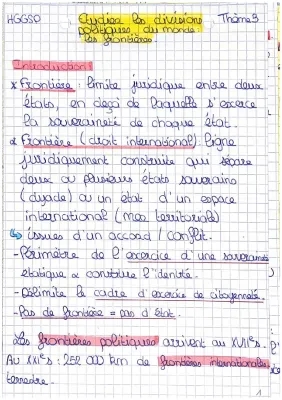 HGGSP Etudier les divisions Thème 3
politiques du monde :
les frontières
Introduction :
x Frontière : limite juridique entre deux
états, en deçà de laquelle s'exerce
la souveraineté de chaque état.
x Frontière (droit international) : ligne
juridiquement construite qui sépare
deux ou plusieurs états souverains
(dyade) ou un état d'un espace
international (mer territoriale)
↳ issues d'un accord / conflit.
- Périmètre de l'exercice d'une souveraineté
étatique & construire l'identité.
- Délimite le cadre d'exercice de citoyenneté.
- Pas de frontière = pas d'état.
Les frontières politiques arrivent au XVIIe s.
Au XXIe s : 252 000 km de frontières internationales
terrestre.
1